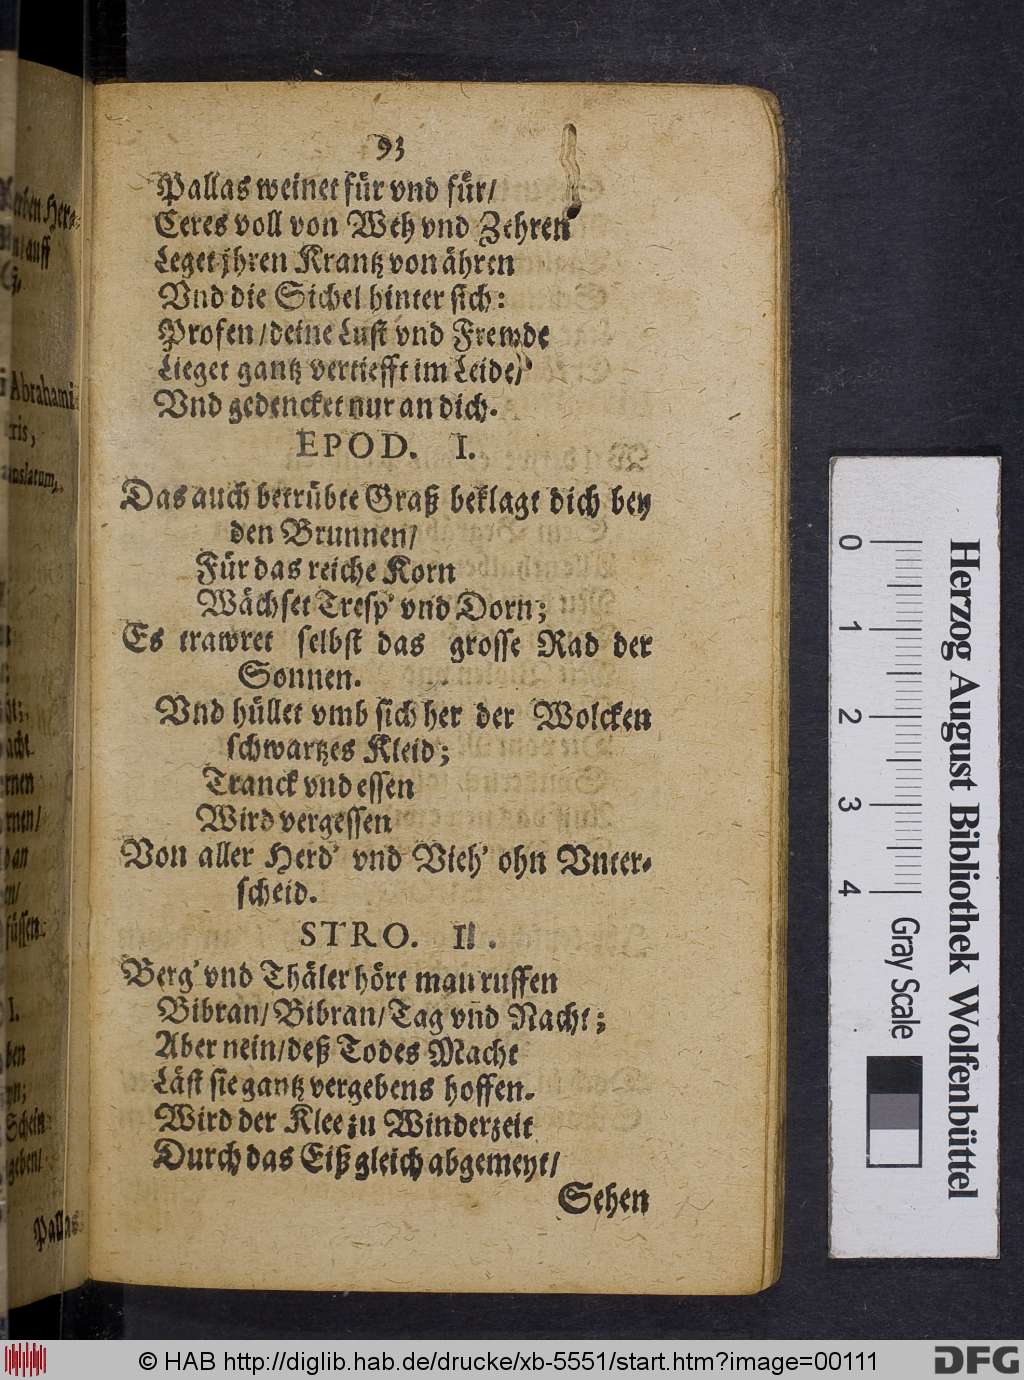 93
Pallas weinet für vnd für/
Ceres voll von Weh vnd Zehren
Leget jhren Krantz von ähren
Vnd die Sichel hinter sich:
Profen/deine Lust vnd Frewde
Lieget gantz vertiefft im Leide/
Vnd gedencket nur an dich.
EPOD. I.
Das auch betrübte Graß beklagt dich bey
den Brunnen/
Für das reiche Korn
Wächset Tresp' vnd Dorn;
Es trawret selbst das grosse Rad der
Sonnen.
Vnd hüllet vmb sich her der Wolcken
schwartzes Kleid;
Tranck vnd essen
Wird vergessen
Von aller Herd' vnd Vieh' ohn Vnter-
scheid.
STRO. II.
Berg' vnd Thäler hört man ruffen
Bibran/Bibran/Tag vnd Nacht;
Aber nein/deß Todes Macht
Läst sie gantz vergebens hoffen.
Wird der Klee zu Winderzeit
Durch das Eiß gleich abgemeyt/
Sehen
Abrahami
acht
füssen.
I.
Schein
geben/
Pallas
0
1
2
3
4
Gray Scale
Herzog August Bibliothek Wolfenbüttel
© HAB http://diglib.hab.de/drucke/xb-5551/start.htm?image=00111
DFG